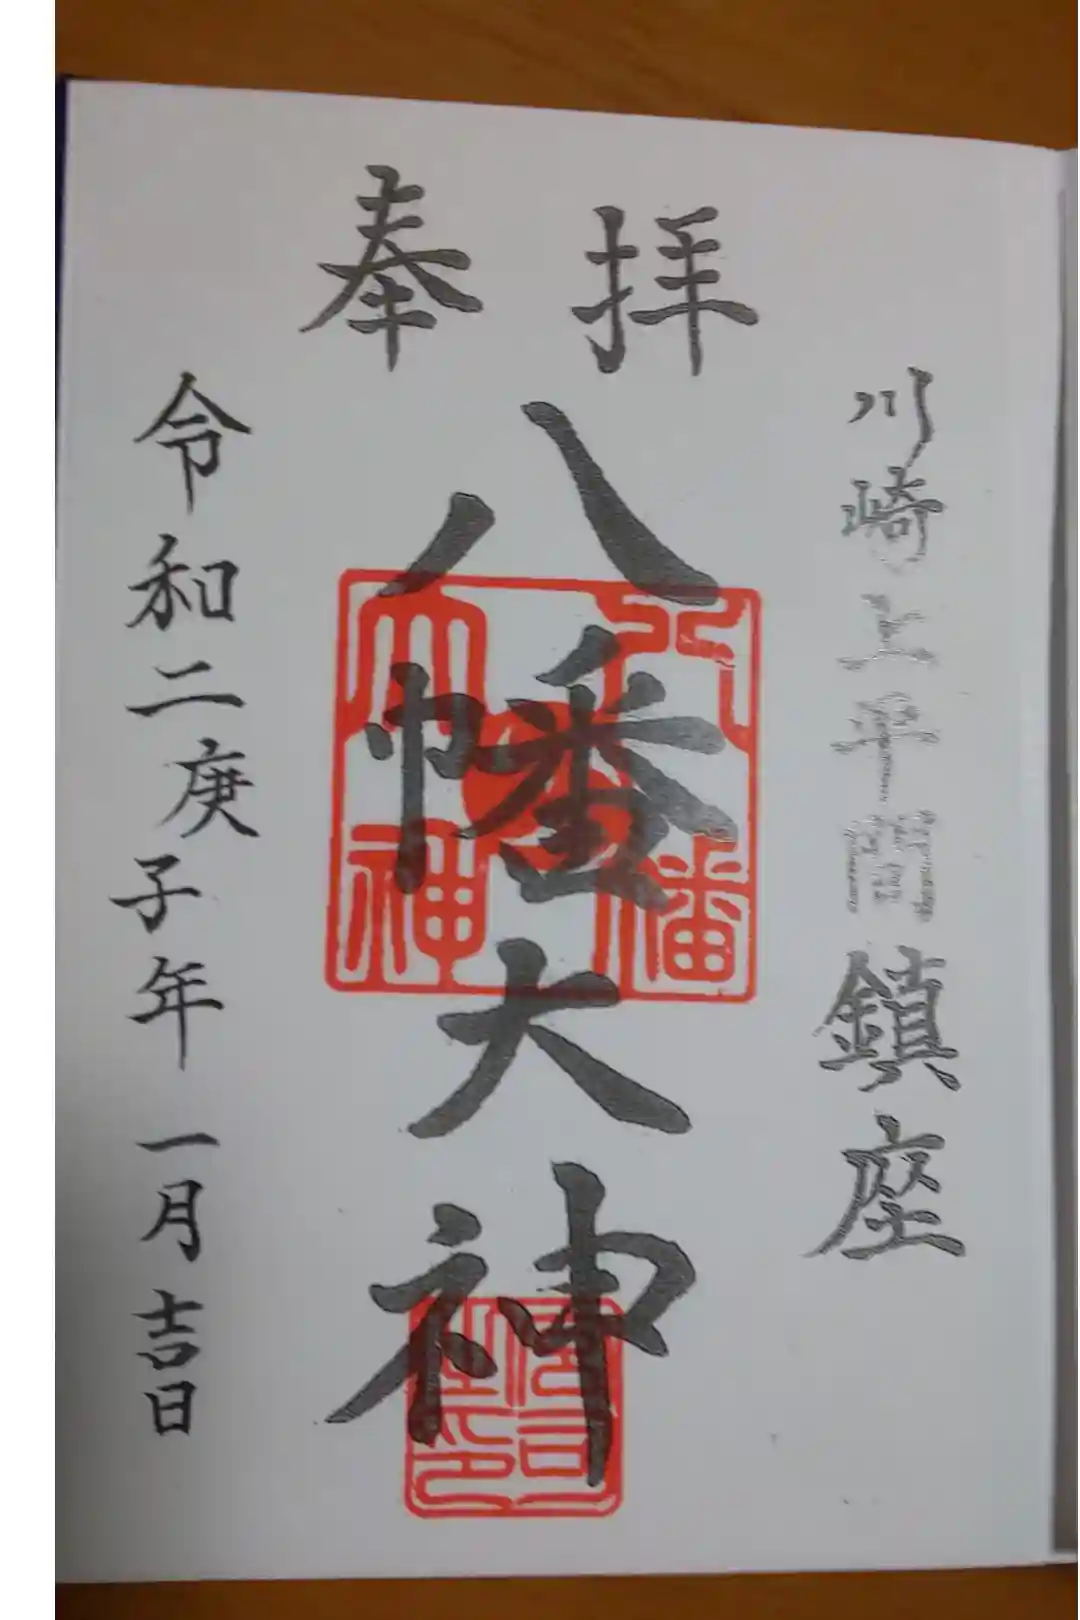 奉拝
川崎上平間鎮座
八幡大神
八幡
大神
令和二庚子年一月吉日